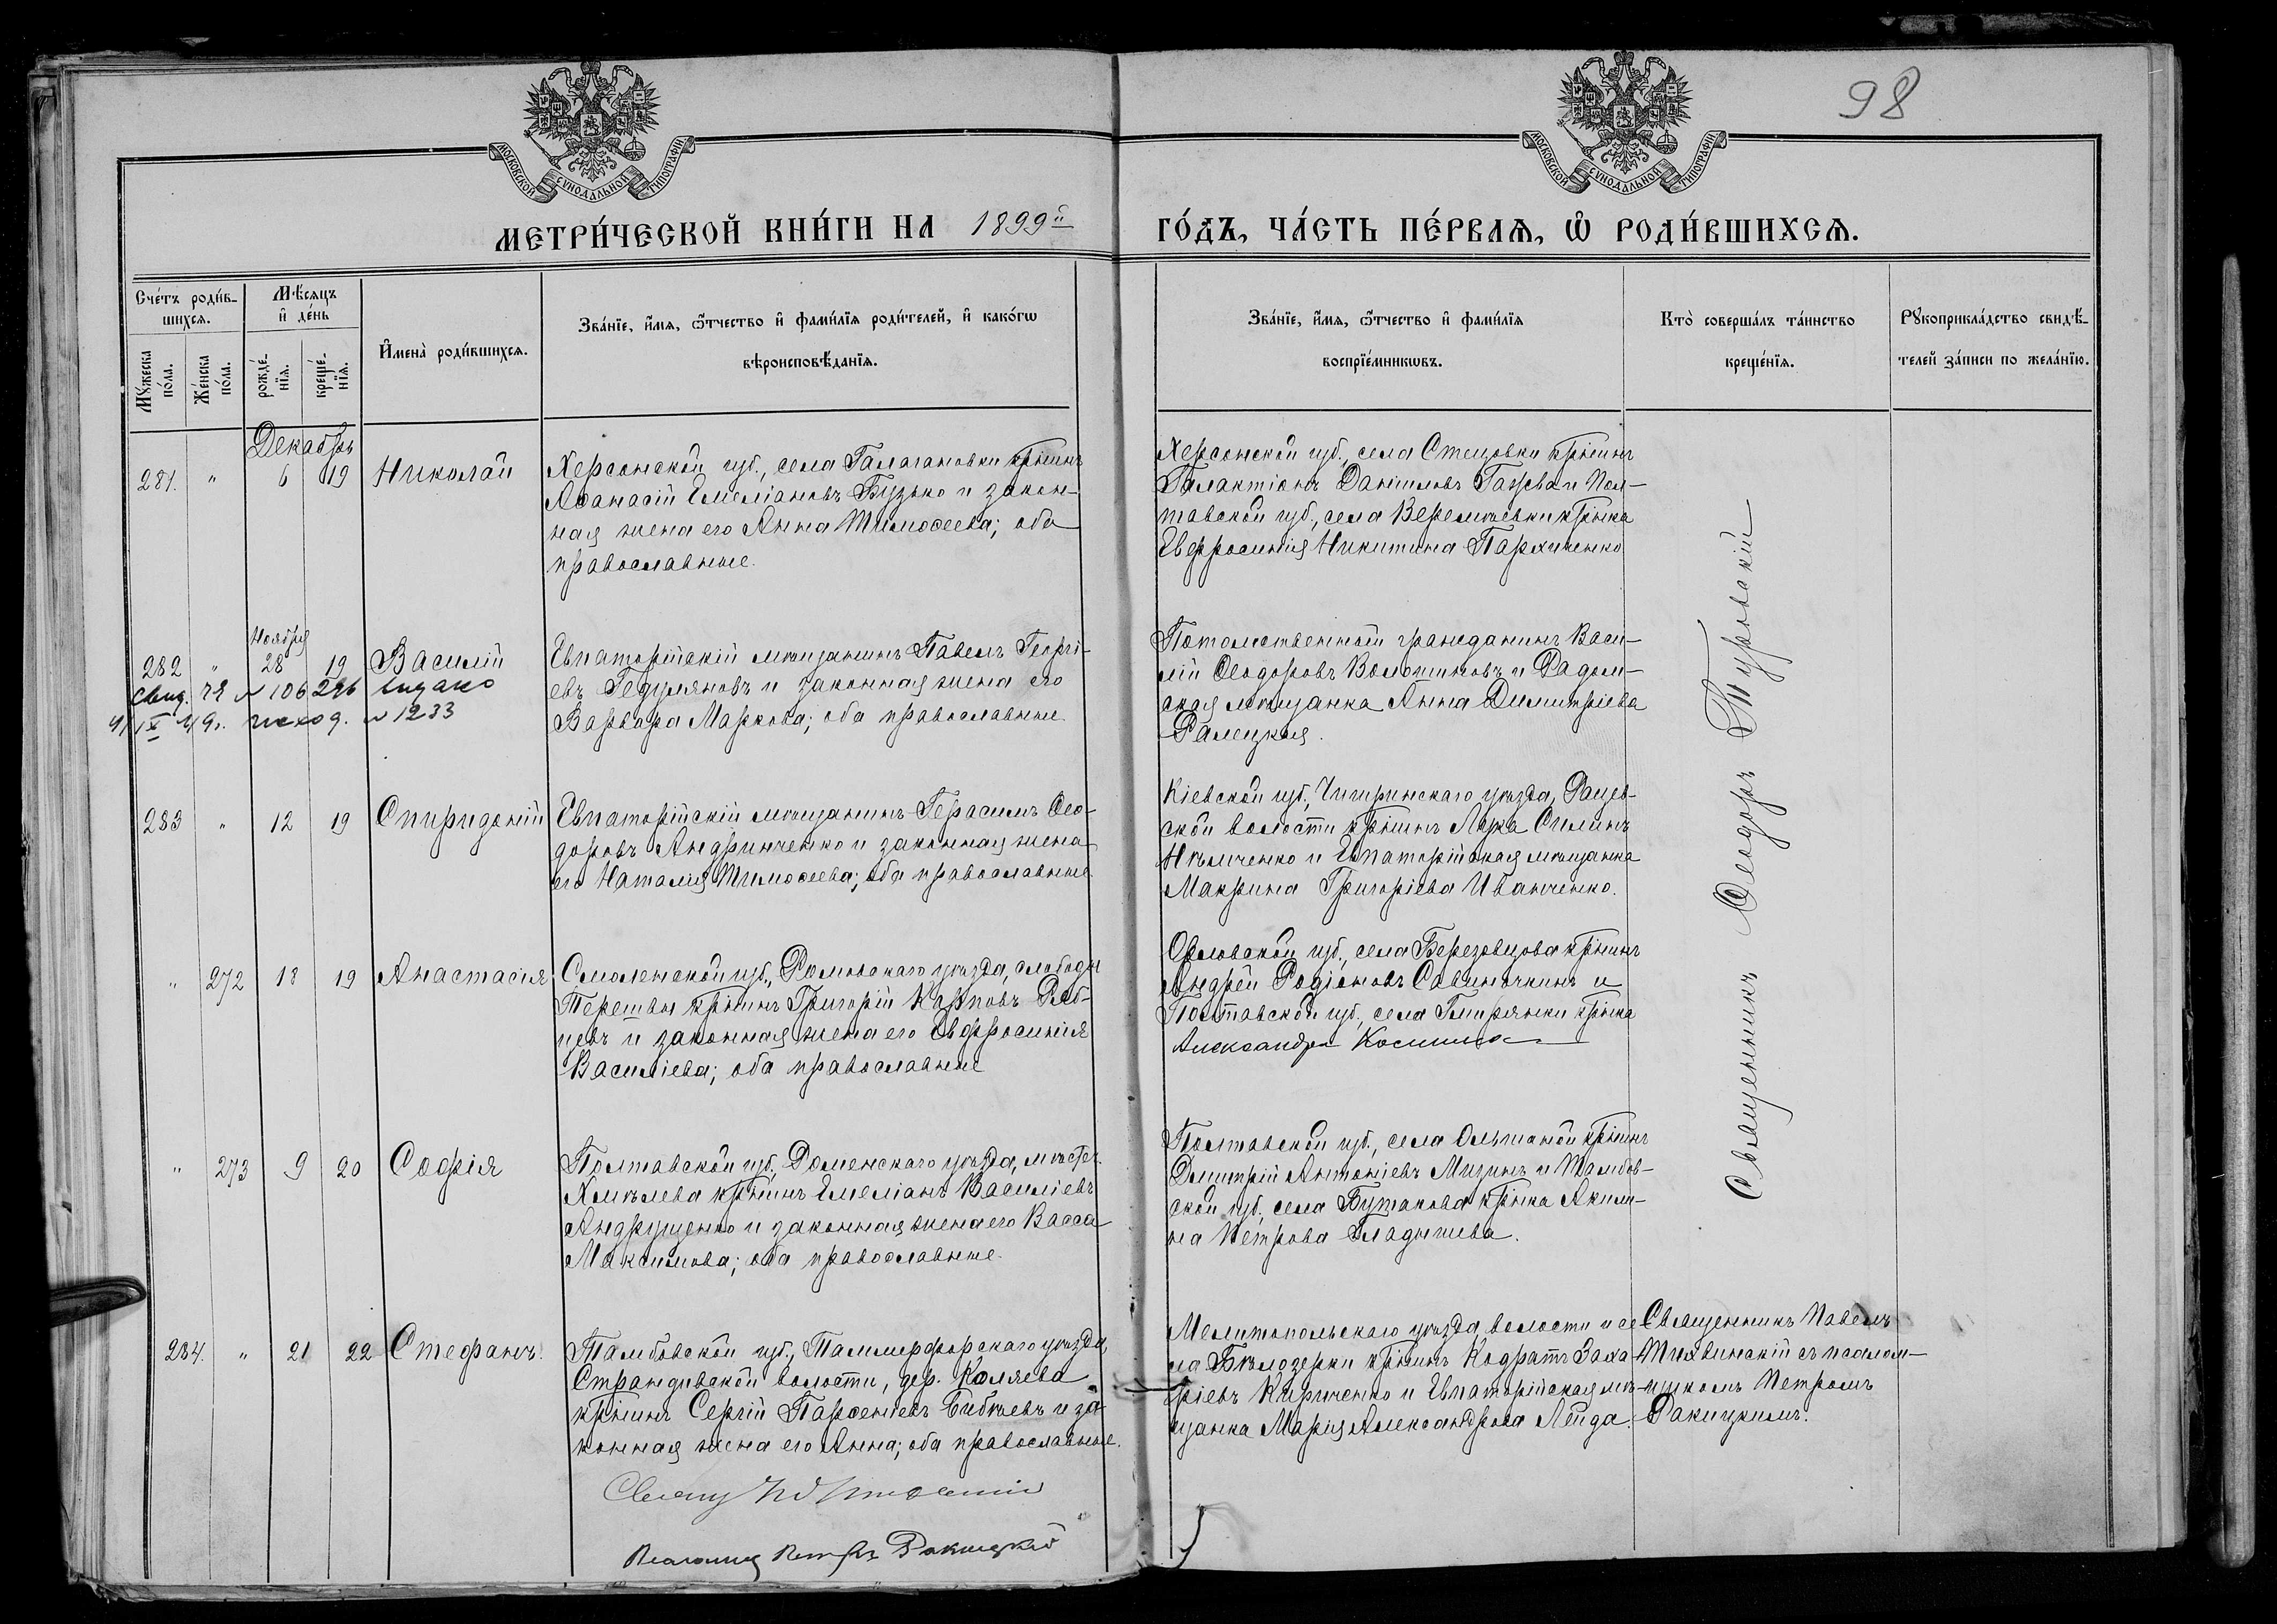 98
МОСКОВСКОЙ СѴНОДАЛЬНОЙ ТИПОГРАФІИ
МОСКОВСКОЙ СѴНОДАЛЬНОЙ ТИПОГРАФІИ
МЕТРИ́ЧЕСКОЙ КНИ́ГИ НА 1899й ГО́ДЪ, ЧА́СТЬ ПЕ́РВАѦ, Ѽ РОДИ́ВШИХСѦ.
Сче́тъ роди́в-
шихсѧ.
Мꙋ́жеска
по́ла.
Же́нска
по́ла.
Мѣ́сѧцъ
и҆ де́нь
рожде́-
нїѧ.
креще́-
нїѧ.
И҆мена̀ роди́вшихсѧ.
Зва́нїе, и҆́мѧ, ѻ҆́тчество и҆ фами́лїѧ роди́телей, и҆ како́гѡ
вѣроисповѣ́данїѧ.
Зва́нїе, и҆́мѧ, ѻ҆́тчество и҆ фами́лїѧ
воспрїе́мникѡвъ.
Кто̀ соверша́лъ та́инство
креще́нїѧ.
Рꙋкоприкла́дство свидѣ́-
телей за́писи по жела́нїю.
Декабрь
281. " 6 19 Николай
Херсонской губ., села Галагановки крінинъ
Аѳанасій Емеліановъ Бузько и закон-
ная жена его Анна Тимоѳеева; оба
православные.
Херсонской губ., села Стецовки крінинъ
Галактіонъ Даніиловъ и Пол-
тавской губ., села Веремѣевки крінка
Евфросинія Никитина Пархименко
Ноября
282 " 28 19 Василій
Свид. ЧЯ № 106296 выдано
4/IX 49г. исход. № 1233
Евпаторійскій мѣщанинъ Павелъ Георгі-
евъ Гедуляновъ и законная жена его
Варвара Маркова; оба православные.
Потомственный гражданинъ Васи-
лій Ѳеодоровъ Волошиновъ и Радом-
ская мѣщанка Анна Димитріева
Ралецкая.
283 " 12 19 Спиридоній
Евпаторійскій мѣщанинъ Герасимъ Ѳео-
доровъ Андринченко и законная жена
его Наталія Тимоѳеева; оба православные.
Кіевской губ., Чигиринскаго уѣзда, Рацев-
ской волости крінинъ Лука Силинъ
Нѣмченко и Евпаторійская мѣщанка
Макрина Григоріева Иванченко.
" 272 18 19 Анастасія
Смоленской губ., уѣзда, слободы
крінинъ Григорій Карповъ Ряб-
цевъ и законная жена его Евфросинія
Василіева; оба православные
Орловской губ., села Березовцова крінинъ
Андрей Родіоновъ Савиночкинъ и
Полтавской губ., села Гмирянки крінка
Александра Косинина
" 273 9 20 Софія
Полтавской губ., Роменскаго уѣзда, мѣстеч.
Хмѣлева крінинъ Емеліанъ Василіевъ
Андрущенко и законная жена его Васса
Максимова; оба православные.
Полтавской губ., села Ольшаной крінинъ
Димитрій Антоніевъ Мизинъ и Тамбов-
ской губ., села Бутакова крінка Акили-
на Петрова Гладышева.
Священникъ Ѳеодоръ Туровскій
284. " 21 22 Стефанъ.
Тамбовской губ., уѣзда,
волости, дер. Коляева
крінинъ Сергій Парѳеніевъ Бибѣевъ и за-
конная жена его Анна; оба православные.
Мелитопольскаго уѣзда, волости и се-
ла Бѣлозерки крінинъ Кодратъ Заха-
ріевъ Кириченко и Евпаторійская мѣ-
щанка Марія Александрова Лейда.
Священникъ Павелъ
Тихвинскій съ псалом-
щикомъ Петромъ
Ракицкимъ.
Псаломщ. Петръ Ракицкій